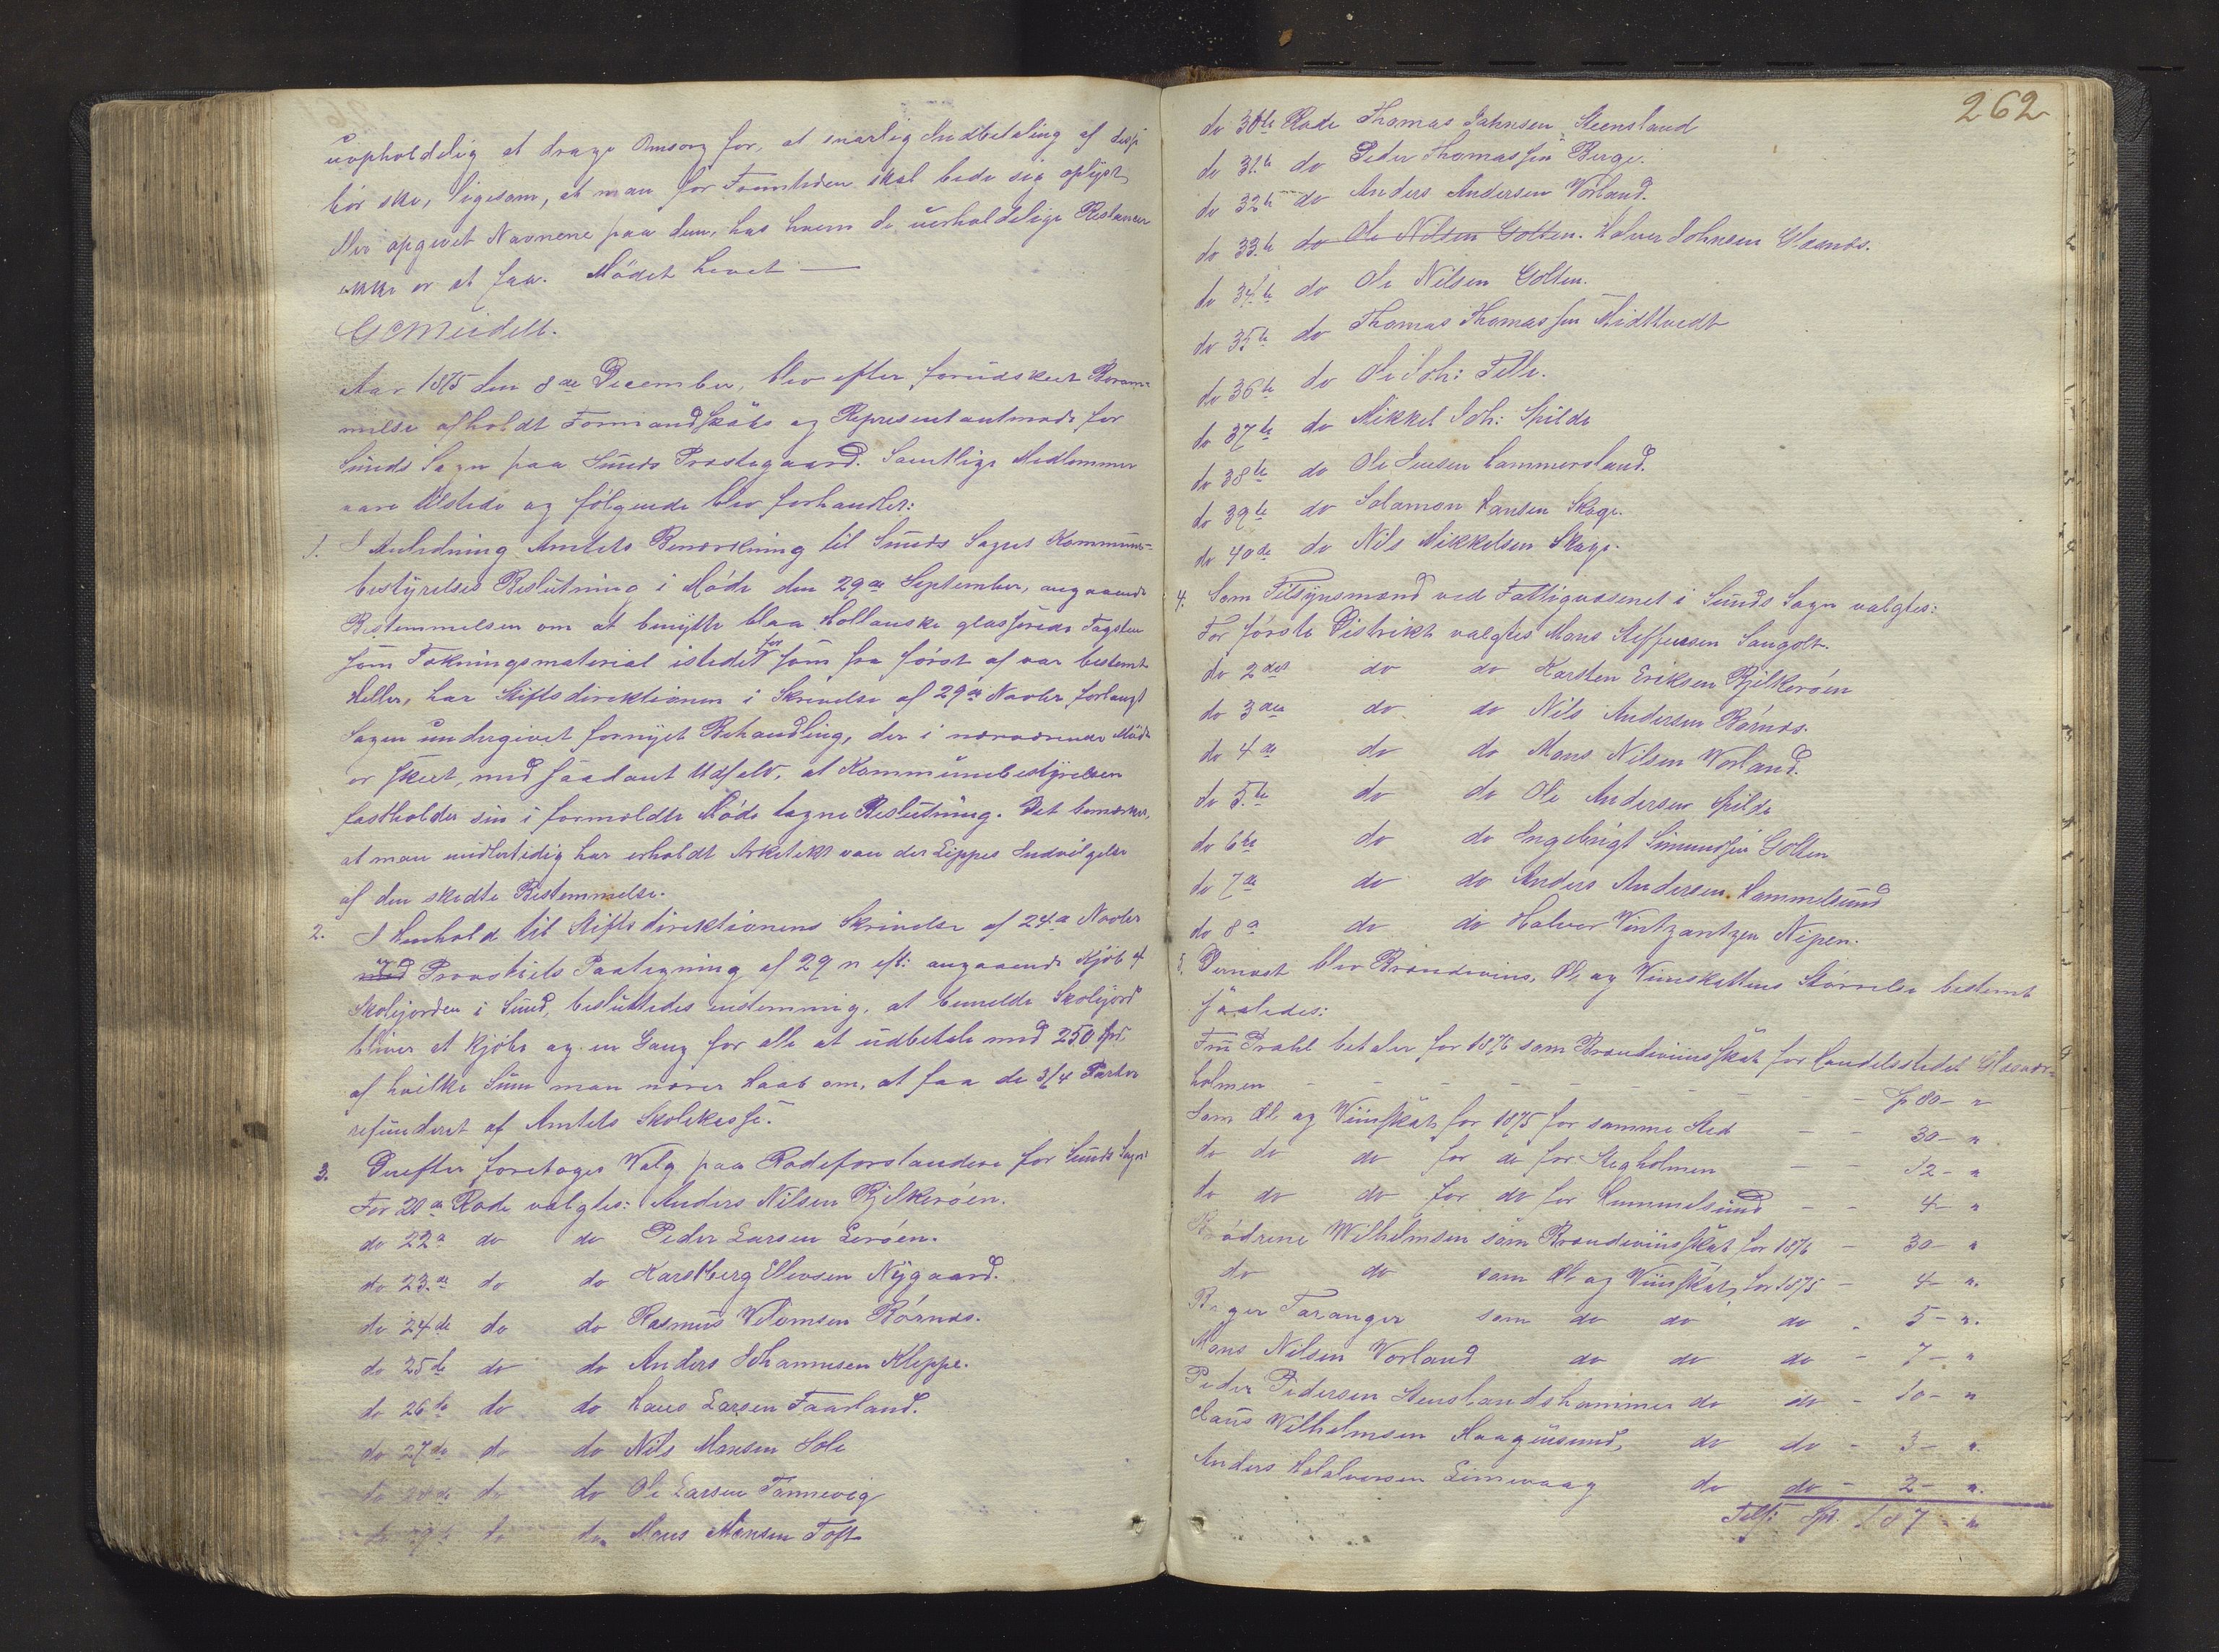 uopholdelig at drage Omsorg for, at snarlig Indbetaling af disse
bör ske, ligesom, at man for Fremtiden skal bede sig oplyst
eller opgivet Navnene paa dem, hos hvem de uerholdelige Restancer
ikke er at faa. Mödet hævet —
G C Meidell.
Aar 1875 den 8de December, blev efter forudskeet Beram-
melse afholdt Formandskabs og Representantmøde for
Sunds Sogn paa Sunds Præstegaard. Samtlige Medlemmer
vare tilstede og fölgende blev forhandlet:
1. I Anledning Amtets Bemærkning til Sunds Sogns Kommune-
bestyrelses Beslutning i Möde den 29de September, angaaende
Bestemmelsen om at benytte blaa Hollanske glasserede Tagsten
som Tækningsmaterial istedet for som fra först af var bestemt
Heller, har Stiftsdirektionen i Skrivelse af 29de Novbr forlangt
Sagen undergivet fornyet Behandling, der i nærværende Möde
er skeet, med saadant Udfald, at Kommunebestyrelsen
fastholder sin i formældte Möde tagne Beslutning. Det bemærkes,
at man midlertidig har erholdt Arkitekt van der Lippes Indvilgelse
af den skedte Bestemmelse.
2. I Henhold til Stiftsdirektionens Skrivelse af 24de Novbr
med og Provstiets Paategning af 29 n. eft: angaaende Kjöb af
Skolejorden i Sund, besluttedes enstemmig, at bemeldte Skolejord
bliver at kjöbe og en Gang for alle at udbetale med 250 Spd.
af hvilke Sum man nærer Haab om, at faa de 3/4 Parter
refunderet af Amtets Skolekasse.
3. Derefter foretoges Valg paa Rodeforstandere for Sunds Sogn:
For 21de Rode valgtes: Anders Nilsen Bjelkeröen.
do 22de do do Peder Larsen Leröen.
do 23de do do Karstberg Ellevsen Nygaard.
do 24de do do Rasmus Villumsen Börnæs.
do 25de do do Anders Johannesen Kleppe.
do 26de do do Hans Larsen Faarland.
do 27de do do Nils Monsen Höle
do 28de do do Ole Larsen Tømmevig
do 29de do do Mons Monsen Toft
262
do 30te Rode Thomas Johnsen Steensland
do 31te do Peder Thomassen Berge.
do 32te do Anders Andersen Vorland.
do 33te do Ole Nilsen Golten. Halvor Johnsen Glesnæs.
do 34te do Ole Nilsen Golten.
do 35te do Thomas Thomassen Midttvedt
do 36te do Ole Joh: Telle.
do 37te do Mikkel Joh: Spilde
do 38te do Ole Jensen Cammersland.
do 39te do Salamon Hansen Skoge.
do 40de do Nils Mikkelsen Skoge.
4. Som Tilsynsmænd ved Fattigvæsenet i Sunds Sogn valgtes:
For förste Distrikt valgtes Mons Steffensen Sangolt.
do 2det do do Karsten Eriksen Bjelkeröen
do 3die do do Nils Andersen Börnæs.
do 4de do do Mons Nilsen Vorland.
do 5te do do Ole Andersen Spilde
do 6te do do Ingebrigt Simonsen Golten
do 7de do do Anders Andersen Hammelsund
do 8de do do Halvor Vintzantzen Nipen.
5. Dernæst blev Brændevins, Öl og Vinskattens Störrelse bestemt
saaledes:
Fru Prahl betaler for 1876 som Brændeviinsskat for Handelsstedet Glesvær-
holmen - - - - - - - - - - Sp 80 - "
Som Öl og Viinskat for 1875 for samme Sted - - 30 - "
do do do for do for Stegholmen - - 12 - "
do do do for do for Hummelsund - - 4 - "
Brödrene Wilhelmsen som Brændeviinsskat for 1876 - 30 - "
do do som Öl og Viinskat for 1875 - 4 - "
Birger Taranger som do do do - 5 - "
Mons Nilsen Vorland do do do - 7 - "
Peder Pedersen Stenslandshammer do do - 10 - "
Claus Wilhelmsen Kaagesund, do do - 3 - "
Anders Halvorsen Limevaag do do - 2 - "
Tils: Spd. 187 - "